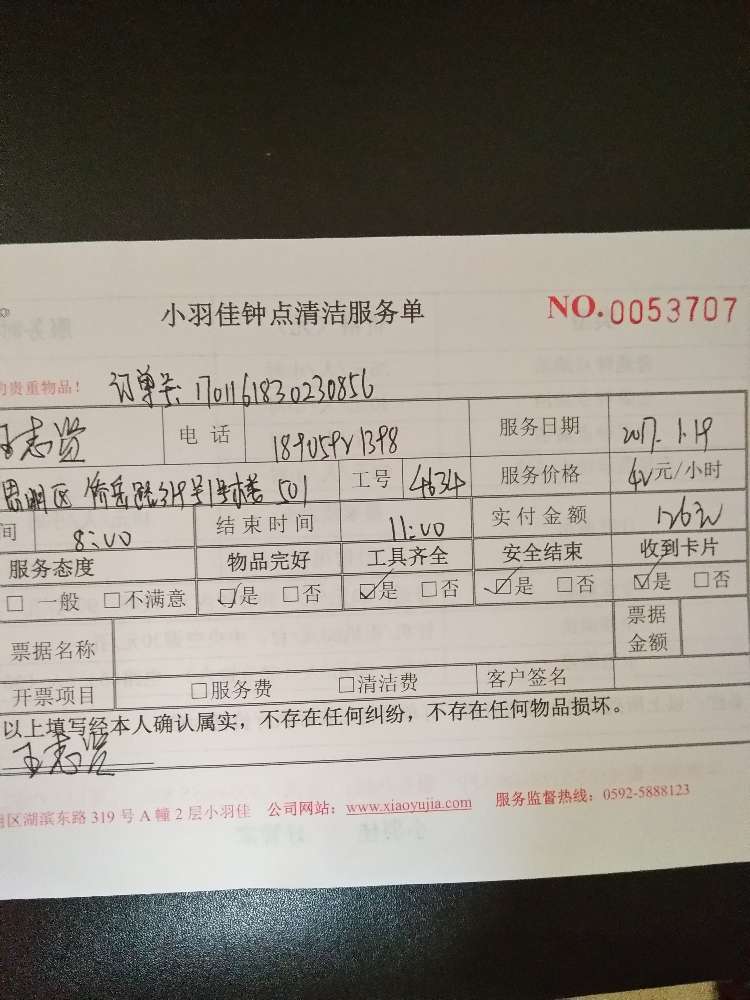 小羽佳钟点清洁服务单 NO.0053707
的贵重物品! 订单号:1701161830230856
王志贤 电 话 服务日期 2017.1.19
思明区 319号 501 工号 4634 服务价格 42元/小时
间 8:00 结束时间 11:00 实付金额 126元
服务态度 物品完好 工具齐全 安全结束 收到卡片
□ 一般 □不满意 ☑是 □否 ☑是 □否 ☑是 □否 ☑是 □否
票据名称 票据金额
开票项目 □服务费 □清洁费 客户签名
以上填写经本人确认属实，不存在任何纠纷，不存在任何物品损坏。
王志贤
明区湖滨东路 319 号 A 幢 2 层小羽佳 公司网站：www.xiaoyujia.com 服务监督热线：0592-5888123